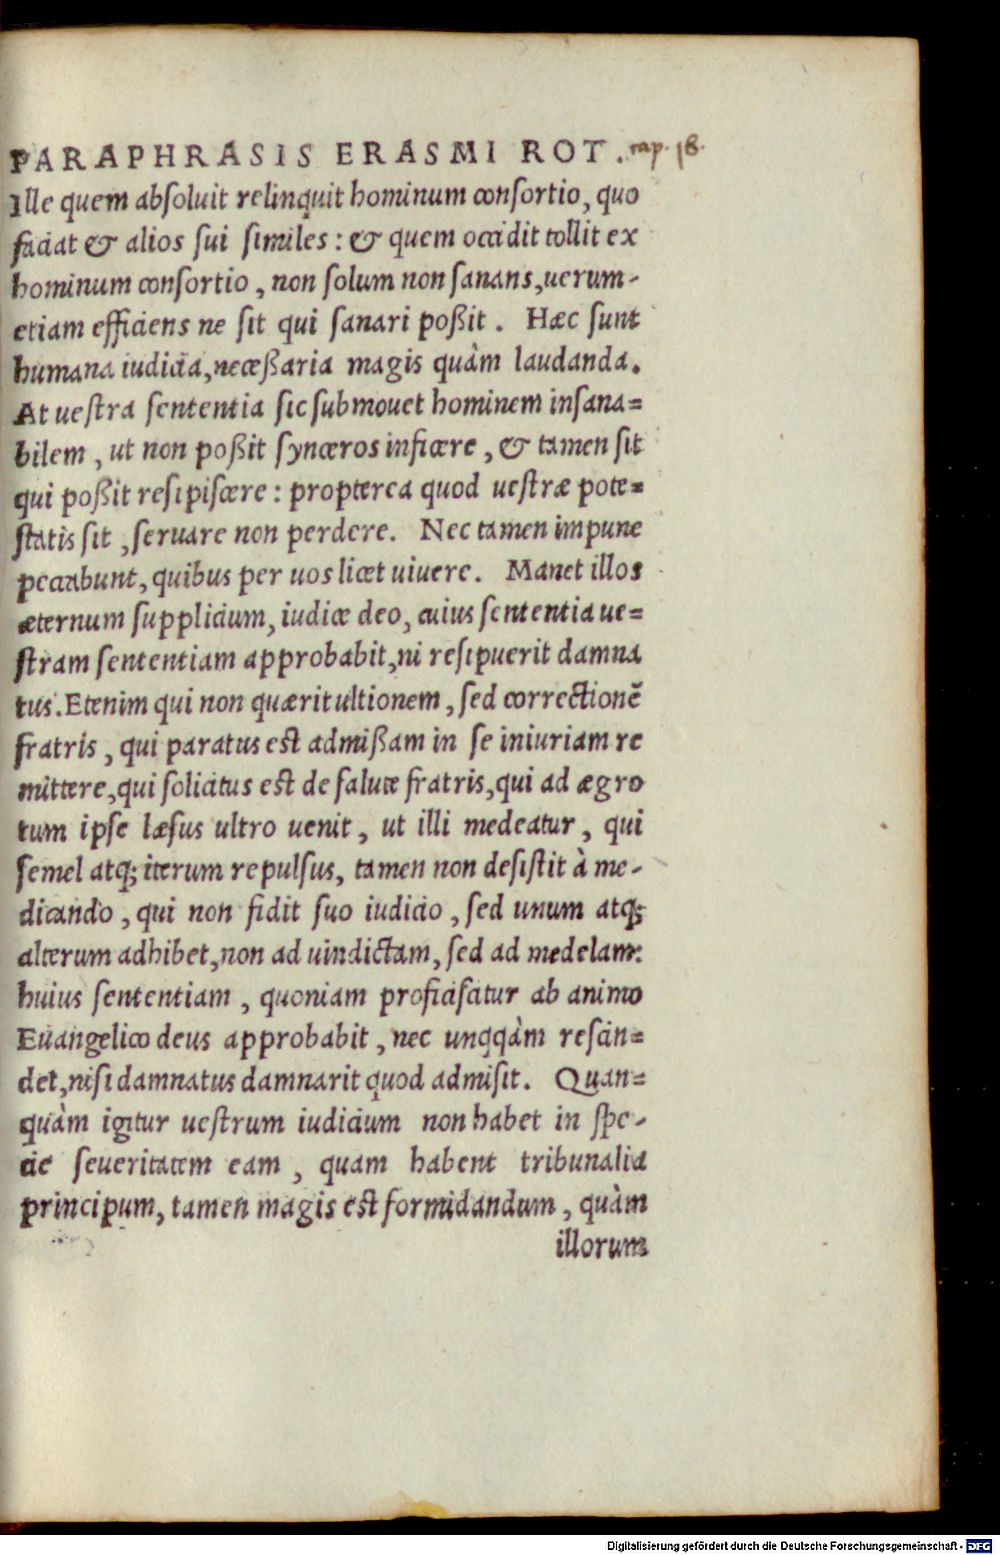 PARAPHRASIS ERASMI ROT. cap. 18.
Ille quem absoluit relinquit hominum consortio, quo
faciat & alios sui similes: & quem occidit tollit ex
hominum consortio, non solum non sanans, uerum-
etiam efficiens ne sit qui sanari poßit. Hæc sunt
humana iudicia, neceßaria magis quàm laudanda.
At uestra sententia sic submouet hominem insana=
bilem, ut non poßit synceros inficere, & tamen sit
qui poßit resipiscere: propterea quod uestræ pote=
statis sit, seruare non perdere. Nec tamen impune
peccabunt, quibus per uos licet uiuere. Manet illos
æternum supplicium, iudice deo, cuius sententia ue=
stram sententiam approbabit, ni resipuerit damna
tus. Etenim qui non quærit ultionem, sed correctionē
fratris, qui paratus est admißam in se iniuriam re
mittere, qui solicitus est de salute fratris, qui ad ægro
tum ipse læsus ultro uenit, ut illi medeatur, qui
semel atq; iterum repulsus, tamen non desistit à me-
dicando, qui non fidit suo iudicio, sed unum atq;
alterum adhibet, non ad uindictam, sed ad medelam:
huius sententiam, quoniam proficiscatur ab animo
Euangelico deus approbabit, nec unqquàm rescin=
det, nisi damnatus damnarit quod admisit. Quan=
quàm igitur uestrum iudicium non habet in spe-
cie seueritatem eam, quam habent tribunalia
principum, tamen magis est formidandum, quàm
illorum
Digitalisierung gefördert durch die Deutsche Forschungsgemeinschaft - DFG